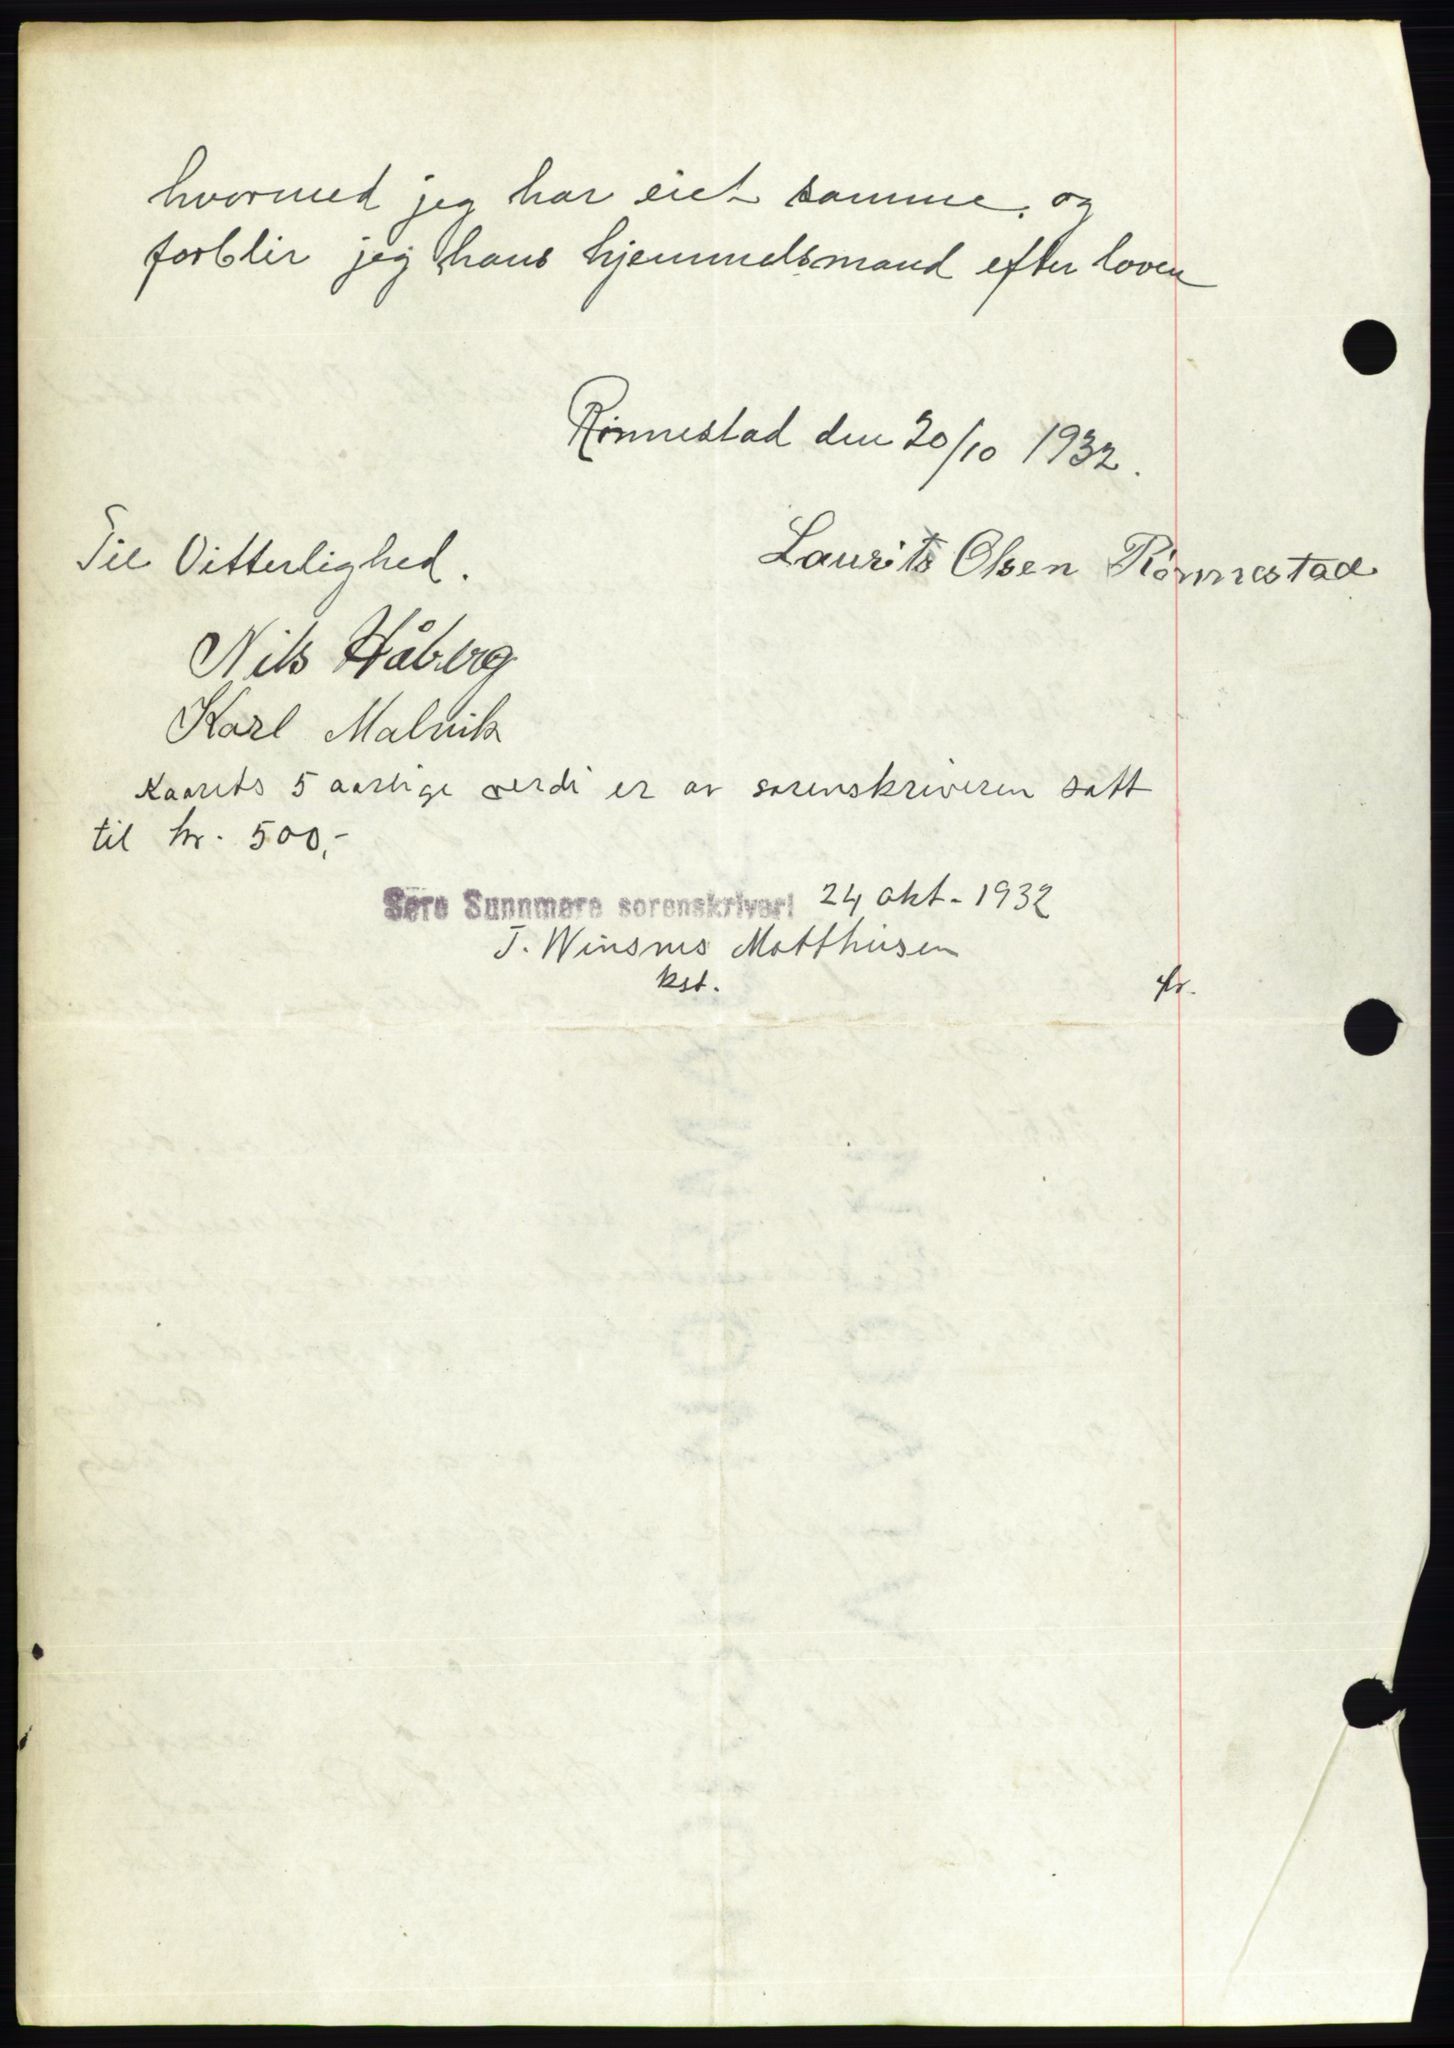 hvormed jeg har eiet samme. og
forblir jeg hans hjemmelsmand efter loven
Rønnestad den 20/10 1932.
Til Vitterlighed.
Laurits Olsen Rønnestad
Nils Håberg
Karl Malvik
Kaarets 5 aarlige verdi er av sorenskriveren satt
til kr. 500,-
Søre Sunnmøre sorenskriveri 24 okt. 1932
J. Winsnes Matthiesen
kst.